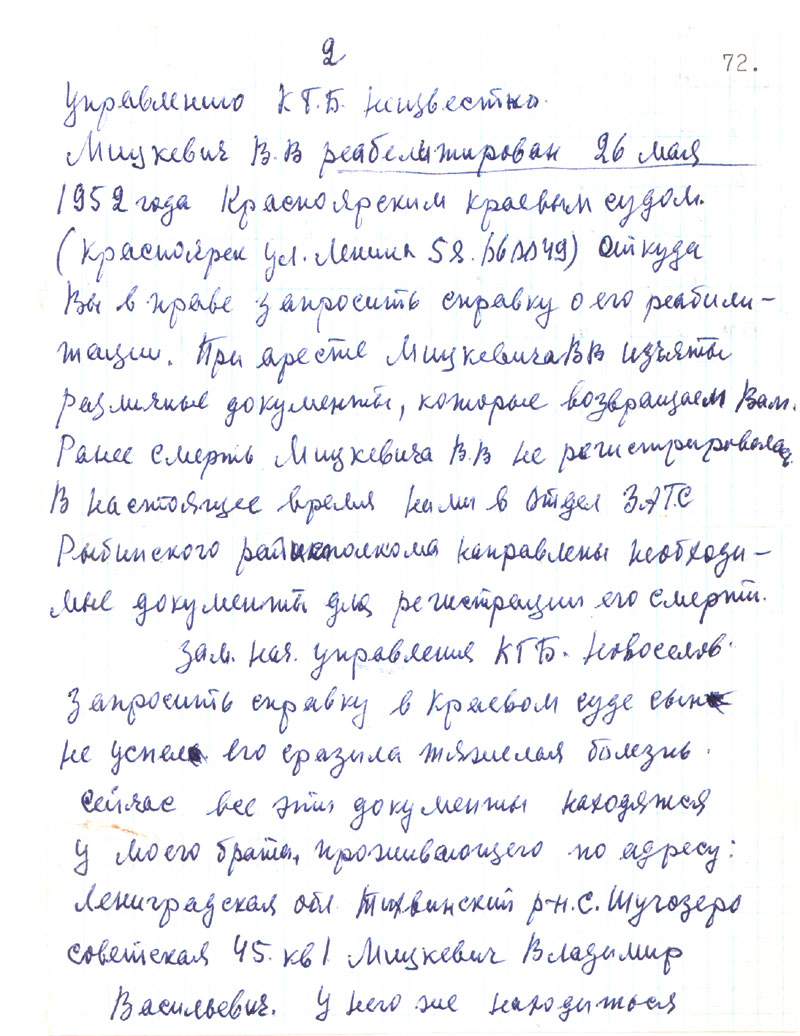 2
72.
Управлению КГБ неизвестно.
Мицкевич В.В реабелитирован 26 мая
1952 года Красноярским краевым судом.
(Красноярск ул. Ленина 58. 660049) Откуда
Вы в праве запросить справку о его реабили-
тации. При аресте Мицкевича ВВ изъяты
различные документы, которые возвращаем Вам.
Ранее смерть Мицкевича В.В не регистрировалась.
В настоящее время нами в отдел ЗАГС
Рыбинского райисполкома направлены необходи-
мые документы для регистрации его смерти.
Зам. нач. управления КГБ. Новоселов.
Запросить справку в Краевом суде сын
не успел. его сразила тяжелая болезнь.
Сейчас все эти документы находятся
у моего брата, проживающего по адресу:
Ленинградская обл. Тихвинский р-н. с. Шугозеро
советская 45. кв 1 Мицкевич Владимир
Васильевич. У него же находиться